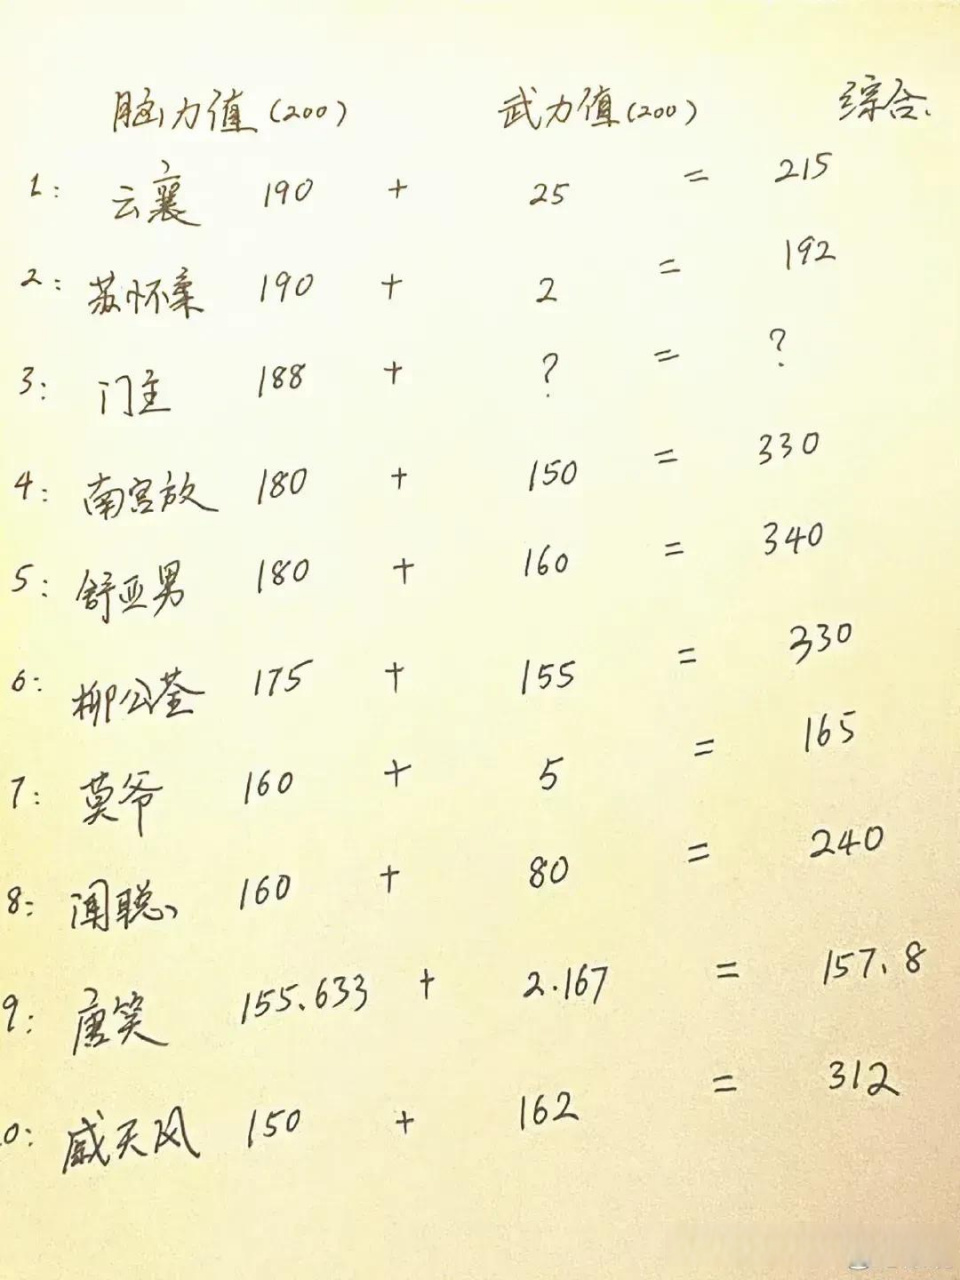 脑力值(200) 武力值(200) 综合.
1: 云襄 190 + 25 = 215
2: 苏怀柔 190 + 2 = 192
3: 门主 188 + ? = ?
4: 南宫放 180 + 150 = 330
5: 舒亚男 180 + 160 = 340
6: 柳公荃 175 + 155 = 330
7: 莫爷 160 + 5 = 165
8: 闻聪 160 + 80 = 240
9: 唐笑 155.633 + 2.167 = 157.8
0: 戚天风 150 + 162 = 312